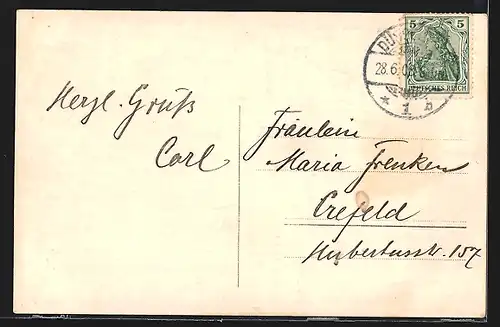 5 5
DEUTSCHES REICH
28.6.0
* 1 n
Herzl. Gruß
Carl
Fräulein
Maria Frenken
Crefeld
Hubertusstr. 157